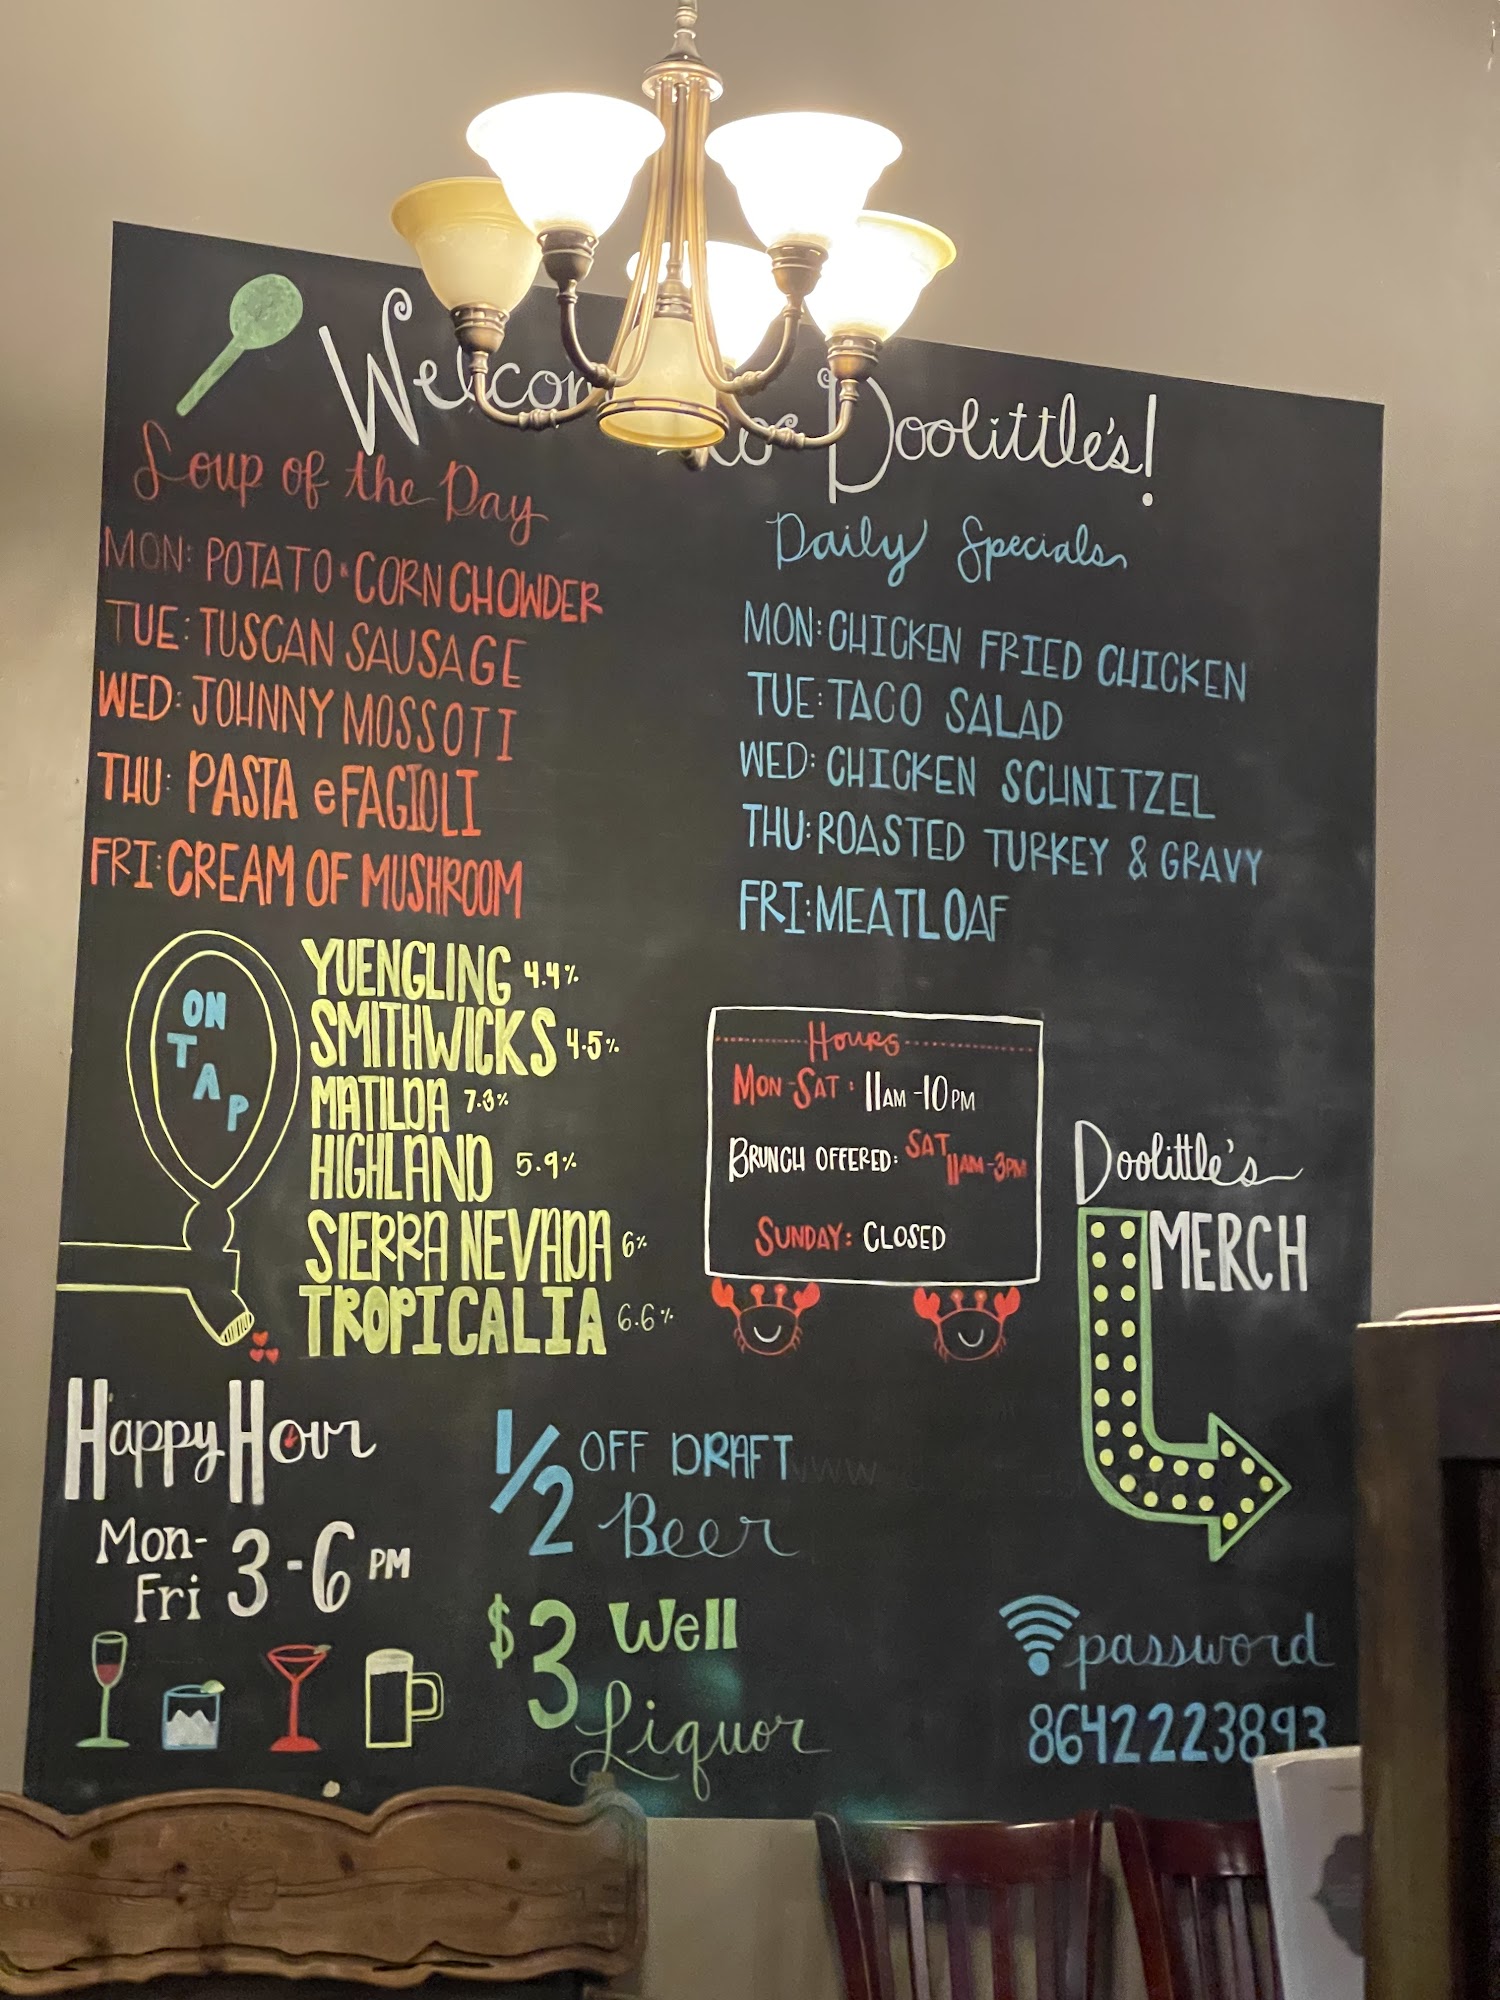 Welcome to Doolittle's!
Soup of the Day
MON: POTATO & CORN CHOWDER
TUE: TUSCAN SAUSAGE
WED: JOHNNY MOSSOTI
THU: PASTA e FAGIOLI
FRI: CREAM OF MUSHROOM
Daily Specials
MON: CHICKEN FRIED CHICKEN
TUE: TACO SALAD
WED: CHICKEN SCHNITZEL
THU: ROASTED TURKEY & GRAVY
FRI: MEATLOAF
ON
TAP
YUENGLING 4.4%
SMITHWICKS 4.5%
MATILDA 7.3%
HIGHLAND 5.9%
SIERRA NEVADA 6%
TROPICALIA 6.6%
Hours
MON-SAT: 11AM-10PM
BRUNCH OFFERED: SAT 11AM-3PM
SUNDAY: CLOSED
Doolittle's
MERCH
Happy Hour
Mon-
Fri 3-6 PM
1/2 OFF DRAFT
Beer
$3 Well
Liquor
password
8642223893